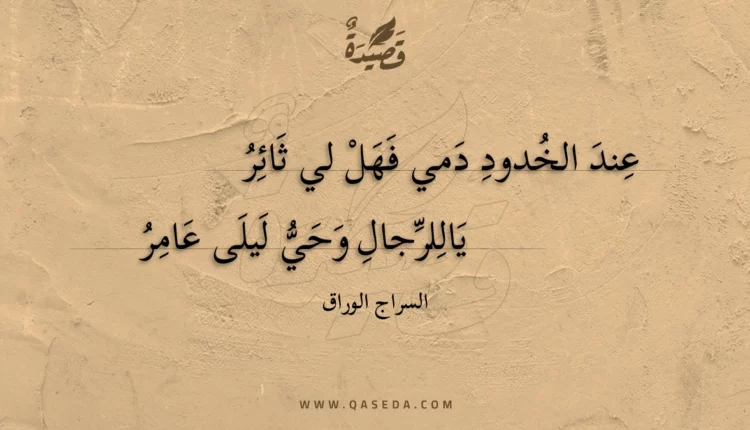 قَصِيدَةٌ
عِندَ الخُدودِ دَمي فَهَلْ لي ثَائِرُ
يَالِلرِّجالِ وَحَيُّ لَيلَى عَامِرُ
السراج الوراق
WWW.QASEDA.COM